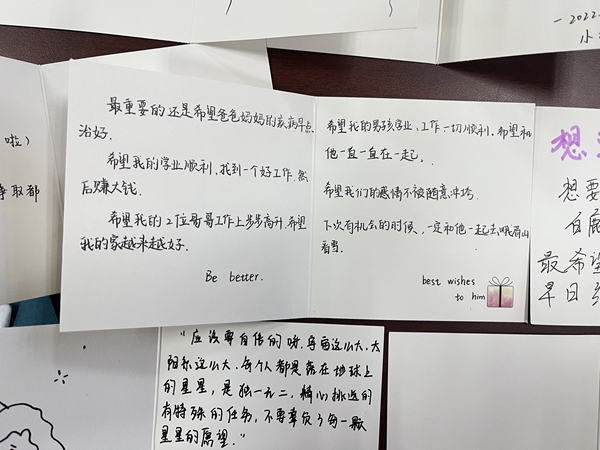 - 2022.
啦）
取都
最重要的还是希望爸爸妈妈的疾病早点
治好.
希望我的学业顺利,找到一个好工作.然
后赚大钱.
希望我的2位哥哥工作上步步高升,希望
我的家越来越好.
Be better.
希望我的男孩学业,工作一切顺利.希望和
他一直一直在一起.
希望我们的感情不被随意冲垮.
下次有机会的时候,一定和他一起去峨眉山
看雪.
best wishes
to him
想
想要
白
最希望
早日
"应该要自信的呀.宇宙这么大,太
阳系这么大.每个人都是落在地球上
的星星,是独一无二,精心挑选的
有特殊的任务,不要辜负了每一颗
星星的愿望."